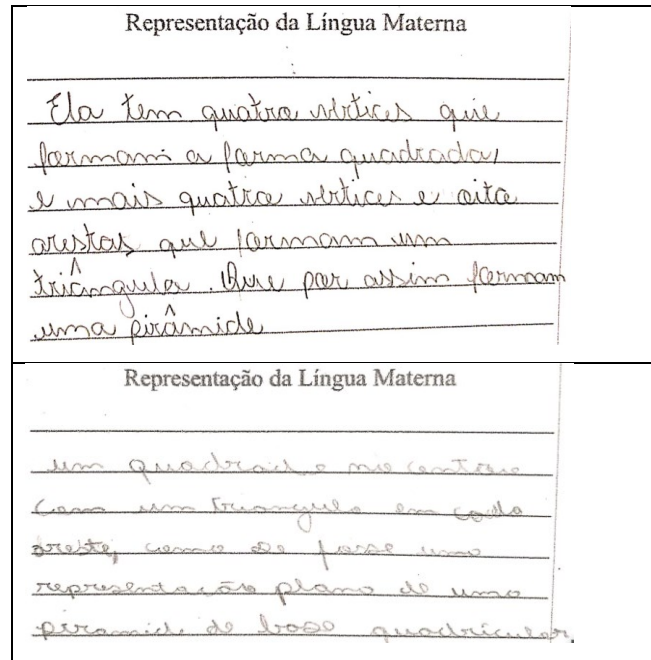 Representação da Língua Materna
Ela tem quatro vértices que
formam a forma quadrada,
e mais quatro vértices e oito
arestas que formam um
triângulo. Que por assim formam
uma pirâmide
Representação da Língua Materna
um quadrado no centro
com um triangulo em cada
areste, como se fosse uma
representação plana de uma
piramide de base quadricular.